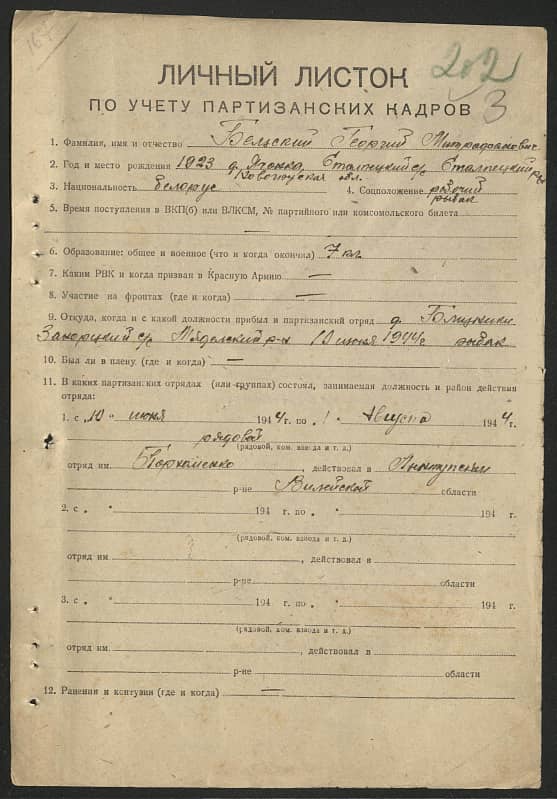 167
202
ЛИЧНЫЙ ЛИСТОК
ПО УЧЕТУ ПАРТИЗАНСКИХ КАДРОВ 3
1. Фамилия, имя и отчество Бельский Георгий Митрофанович
2. Год и место рождения 1923 д. Столпецкий с/с Столпецкий р-н
обл.
3. Национальность белорус 4. Соцположение рабочий
рыбак
5. Время поступления в ВКП(б) или ВЛКСМ, № партийного или комсомольского билета
—
6. Образование: общее и военное (что и когда окончил) 7 кл.
7. Каким РВК и когда призван в Красную Армию —
8. Участие на фронтах (где и когда) —
9. Откуда, когда и с какой должности прибыл и партизанский отряд д.
с/с Мядельский р-н 10 июня 1944 г рыбак
10. Был ли в плену (где и когда) —
11. В каких партизанских отрядах (или группах) состоял, занимаемая должность и район действия
отряда:
1. с „10“ июня 1944 г. по „1“ Августа 1944 г.
рядовой
(рядовой, ком. взвода и т. д.)
отряд им. Пархоменко, действовал в
р-не Вилейской области
2. с „ “ 194 г. по „ “ 194 г.
(рядовой, ком. взвода и т. д.)
отряд им. , действовал в
р-не области
3. с „ “ 194 г. по „ “ 194 г.
(рядовой, ком. взвода и т. д.)
отряд им. , действовал в
р-не области
12. Ранения и контузии (где и когда) —